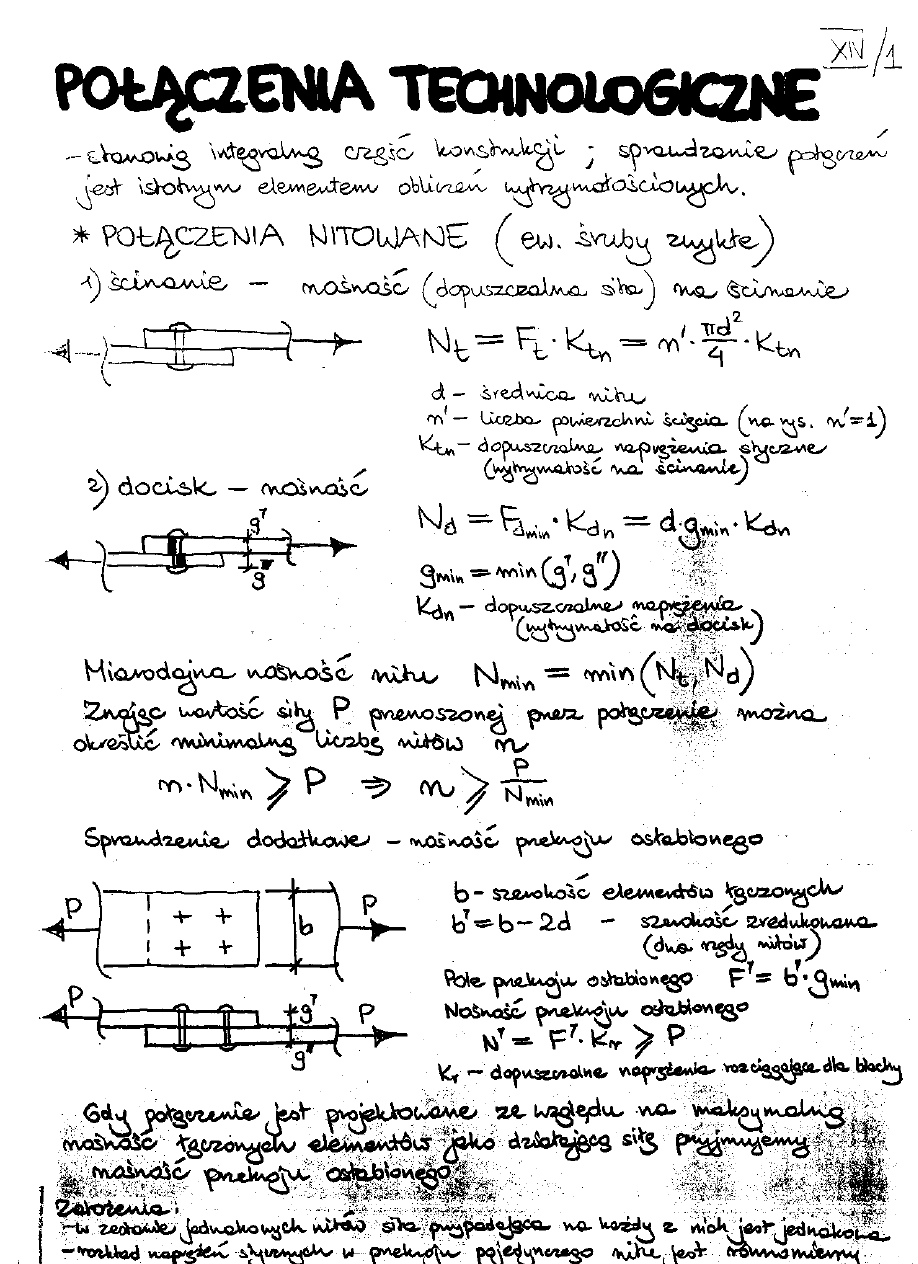 XIV/1
POŁĄCZENIA TECHNOLOGICZNE
- stanowią integralną część konstrukcji ; sprawdzanie połączeń
jest istotnym elementem obliczeń wytrzymałościowych.
* POŁĄCZENIA NITOWANE (ew. śruby zwykłe)
1) ścinanie – nośność (dopuszczalna siła) na ścinanie
N_t = F_t · k_tn = n' · πd²/4 · k_tn
d – średnica nitu
n' – liczba powierzchni ścięcia (na rys. n'=1)
k_tn – dopuszczalne naprężenia styczne
(wytrzymałość na ścinanie)
2) docisk – nośność
N_d = F_dmin · k_dn = d·g_min · k_dn
g'
g''
g_min = min(g', g'')
k_dn – dopuszczalne naprężenia
(wytrzymałość na docisk)
Miarodajna nośność nitu N_min = min(N_t, N_d)
Znając wartość siły P przenoszonej przez połączenie można
określić minimalną liczbę nitów n
n·N_min ⩾ P ⇒ n ⩾ P/N_min
Sprawdzenie dodatkowe – nośność przekroju osłabionego
P b P
b – szerokość elementów łączonych
b' = b – 2d – szerokość zredukowana
(dwa rzędy nitów)
Pole przekroju osłabionego F' = b'·g_min
P g' P
g''
Nośność przekroju osłabionego
N' = F'·k_r ⩾ P
k_r – dopuszczalne naprężenia rozciągające dla blachy
Gdy połączenie jest projektowane ze względu na maksymalną
nośność łączonych elementów jako działającą siłę przyjmujemy
nośność przekroju osłabionego
Założenia:
– w zestawie jednakowych nitów siła przypadająca na każdy z nich jest jednakowa
– rozkład naprężeń stycznych w przekroju pojedynczego nitu jest równomierny